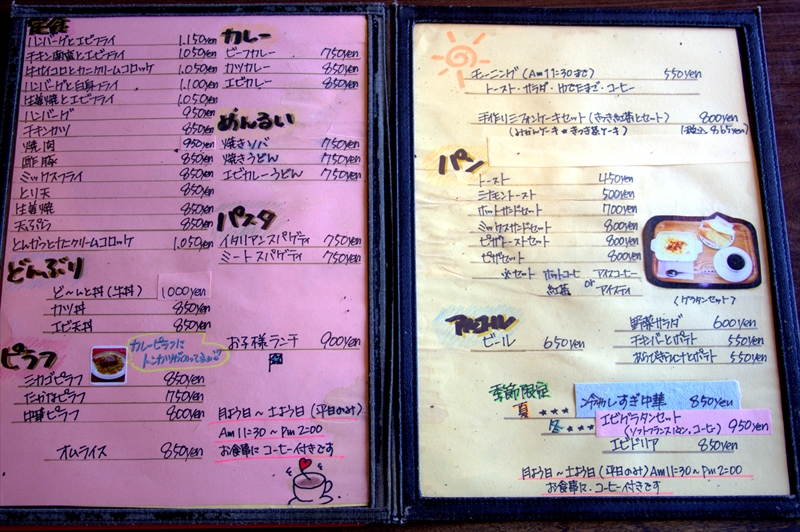 定食
ハンバーグとエビフライ 1,150yen
チキン南蛮とエビフライ 1,050yen
とカニクリームコロッケ 1,050yen
ハンバーグと白身フライ 1,100yen
生姜焼とエビフライ 1,050yen
ハンバーグ 950yen
チキンカツ 850yen
焼肉 950yen
酢豚 850yen
ミックスフライ 850yen
とり天 850yen
生姜焼 850yen
天ぷら 850yen
とんかつとカニクリームコロッケ 1,050yen
どんぶり
ど〜んと丼(牛丼) 1,000yen
カツ丼 850yen
エビ天丼 850yen
ピラフ
カレーピラフに
トンカツがのってるよ
ミカゴピラフ 850yen
たかなピラフ 750yen
中華ピラフ 800yen
オムライス 850yen
カレー
ビーフカレー 750yen
カツカレー 850yen
エビカレー 850yen
めんるい
焼きソバ 750yen
焼きうどん 750yen
エビカレーうどん 750yen
パスタ
イタリアンスパゲティ 750yen
ミートスパゲティ 750yen
お子様ランチ 900yen
月よう日〜土よう日(平日のみ)
Am11:30〜Pm2:00
お食事にコーヒー付きです
モーニング(Am11:30まで) 550yen
トースト・サラダ・ゆでたまご・コーヒー
手作りシフォンケーキセット(きっき紅茶とセット) 800yen
(みかんケーキ★きっき茶ケーキ) (税込865yen)
パン
トースト 450yen
シナモントースト 500yen
ホットサンドセット 700yen
ミックスサンドセット 800yen
ピザトーストセット 800yen
ピザセット 800yen
※セット ホットコーヒー アイスコーヒー
紅茶 or アイスティ
(グラタンセット)
アルコール
ビール 650yen
野菜サラダ 600yen
チキンバーとポテト 550yen
とポテト 550yen
季節限定
夏 ★★★ 冷やしすぎ中華 850yen
冬 ★★★ エビグラタンセット
(ソフトフランスパン、コーヒー) 950yen
エビドリア 850yen
月よう日〜土よう日(平日のみ)Am11:30〜Pm2:00
お食事に、コーヒー付きです